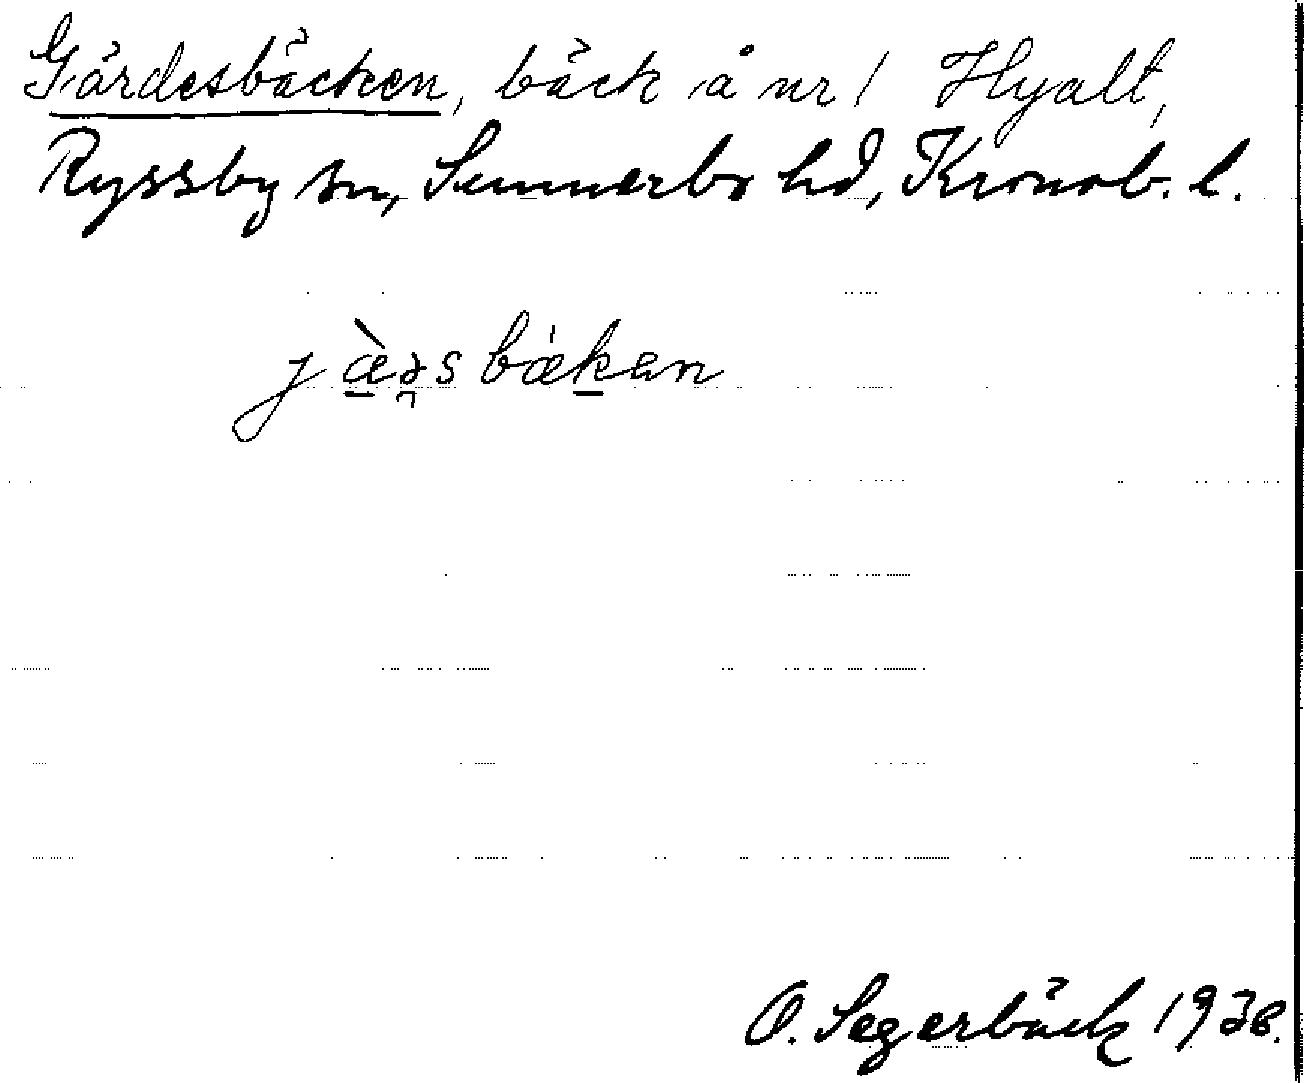 Gärdesbäcken, bäck å nr 1 Hyalt,
Ryssby sn, Sunnerbo hd, Kronob. l.
jæ̀ə̯sbækan
O. Segerbäck 1938.